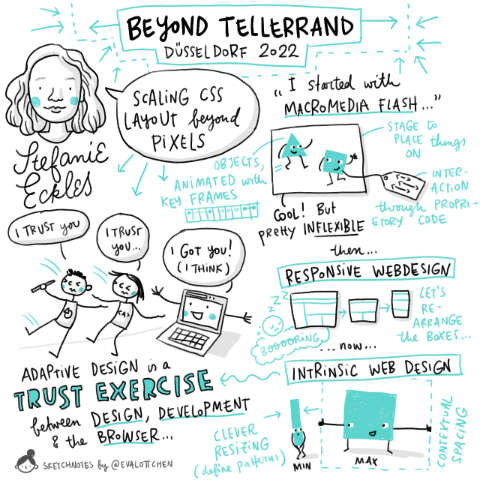 BEYOND TELLERRAND
DÜSSELDORF 2022
SCALING CSS
LAYOUT beyond
PIXELS
Stefanie
Eckles
"I started with
MACROMEDIA FLASH..."
STAGE to
PLACE things
ON
OBJECTS,
ANIMATED with
KEY FRAMES
INTER-
ACTION
through PROPRI-
ETORY CODE
COOL! But
pretty INFLEXIBLE
then...
RESPONSIVE WEBDESIGN
ZZZ
BOOOORING
LET'S
RE-
ARRANGE
the BOXES...
...now...
INTRINSIC WEB DESIGN
CLEVER
RESIZING
(define patterns)
MIN
MAX
CONTEXTUAL
SPACING
I TRUST YOU
I TRUST
YOU...
I GOT YOU!
(I THINK)
CSS
ADAPTIVE DESIGN is a
TRUST EXERCISE
between DESIGN, DEVELOPMENT
& the BROWSER...
SKETCHNOTES by @EVALOTTCHEN